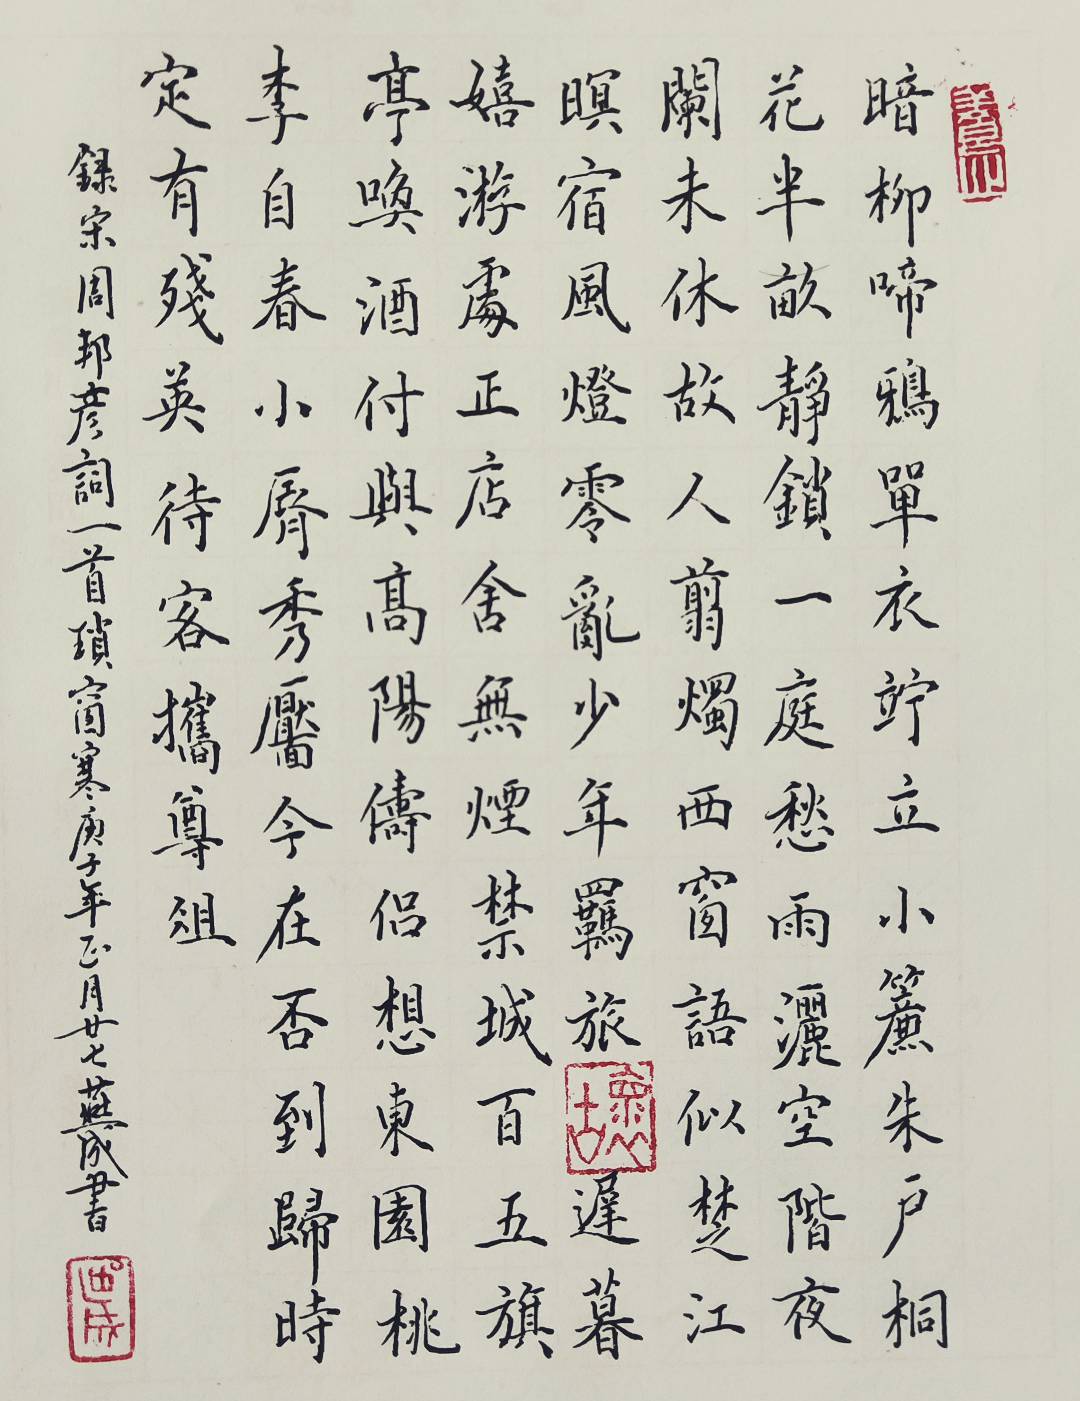 暗柳啼鴉單衣竚立小簾朱戶桐
花半畝靜鎖一庭愁雨灑空階夜
闌未休故人翦燭西窗語似楚江
暝宿風燈零亂少年羈旅遲暮
嬉游處正店舍無煙禁城百五旗
亭喚酒付與高陽儔侶想東園桃
李自春小脣秀靨今在否到歸時
定有殘英待客攜尊俎
録宋周邦彦詞一首瑣窗寒庚子年正月廿七燕成書